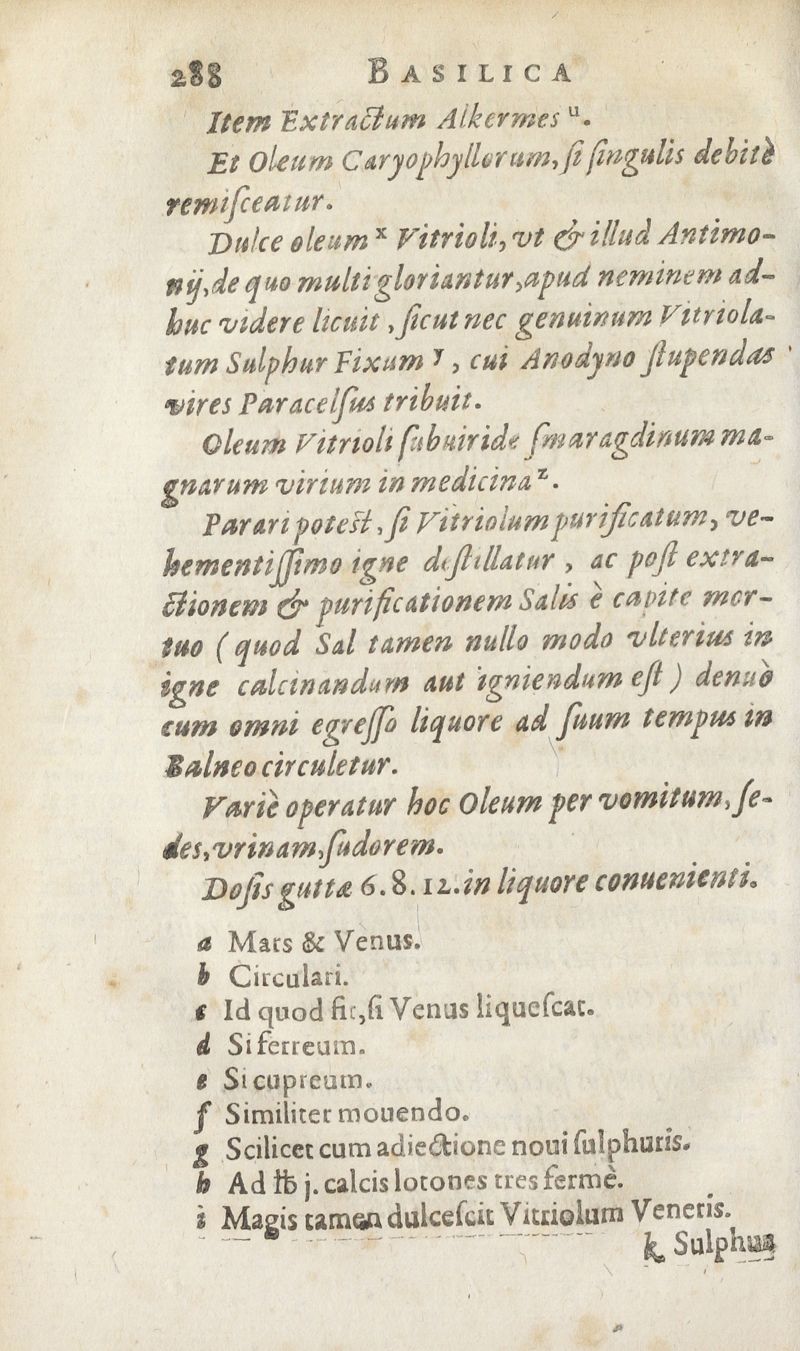 288 BASILICA
Item Extractum Alkermes ᵘ.
Et Oleum Caryophyllorum, ſi ſingulis debitè
remiſceatur.
Dulce oleum ˣ Vitrioli, vt & illud Antimo-
nij, de quo multi gloriantur, apud neminem ad-
huc videre licuit, ſicut nec genuinum Vitriola-
tum Sulphur Fixum ʸ, cui Anodyno ſtupendas
vires Paracelſus tribuit.
Oleum Vitrioli ſubuiride ſmaragdinum ma-
gnarum virium in medicina ᶻ.
Parari poteſt, ſi Vitriolum purificatum, ve-
hementiſſimo igne deſtillatur, ac poſt extra-
ctionem & purificationem Salis è capite mor-
tuo (quod Sal tamen nullo modo vlterius in
igne calcinandum aut igniendum eſt) denuò
cum omni egreſſo liquore ad ſuum tempus in
Balneo circuletur.
Variè operatur hoc Oleum per vomitum, ſe-
des, vrinam, ſudorem.
Doſis guttæ 6. 8. 12. in liquore conuenienti.
a Mars & Venus.
b Circulari.
c Id quod fit, ſi Venus liqueſcat.
d Si ferreum.
e Si cupreum.
f Similiter mouendo.
g Scilicet cum adiectione noui ſulphuris.
h Ad ℔ j. calcis lotones tres fermè.
i Magis tamen dulceſcit Vitriolum Veneris.
k Sulphur